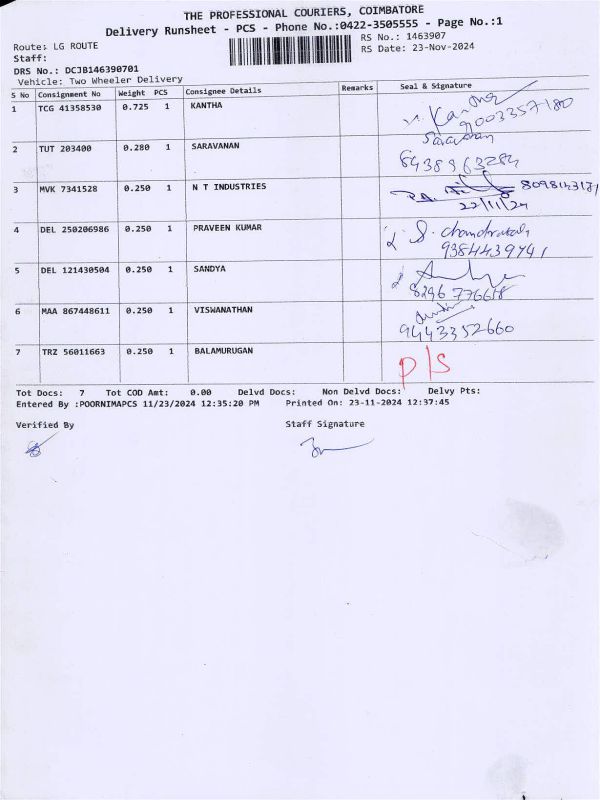 THE PROFESSIONAL COURIERS, COIMBATORE
Delivery Runsheet - PCS - Phone No.:0422-3505555 - Page No.:1
Route: LG ROUTE
RS No.: 1463907
Staff:
RS Date: 23-Nov-2024
DRS No.: DCJB146390701
Vehicle: Two Wheeler Delivery
S No Consignment No Weight PCS Consignee Details Remarks Seal & Signature
1 TCG 41358530 0.725 1 KANTHA 9003357180
2 TUT 203400 0.280 1 SARAVANAN Saravanan
6438963284
3 MVK 7341528 0.250 1 N T INDUSTRIES
22/11/24
4 DEL 250206986 0.250 1 PRAVEEN KUMAR
9384439741
5 DEL 121430504 0.250 1 SANDYA
8296776618
6 MAA 867448611 0.250 1 VISWANATHAN
9443352660
7 TRZ 56011663 0.250 1 BALAMURUGAN P/S
Tot Docs: 7 Tot COD Amt: 0.00 Delvd Docs: Non Delvd Docs: Delvy Pts:
Entered By :POORNIMAPCS 11/23/2024 12:35:20 PM Printed On: 23-11-2024 12:37:45
Verified By Staff Signature